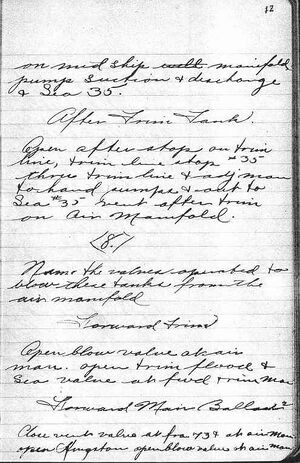 12
on mid ship manifold
pump suction & discharge
& Sea 35.
After Trim Tank.
Open after stop on trim
line, trim line stop #35
thro trim line & adj man
to hand pumps & out to
Sea #35 vent after trim
on Air Manifold.
<8.>
Name the valves operated to
blow these tanks from the
air manifold
Forward Trim
Open blow valve at air
man. open trim flood &
Sea valve at fwd trim man
Forward Main Ballast
Close vent valve at fra 73 & at air man
open Kingston open blow valve at air man